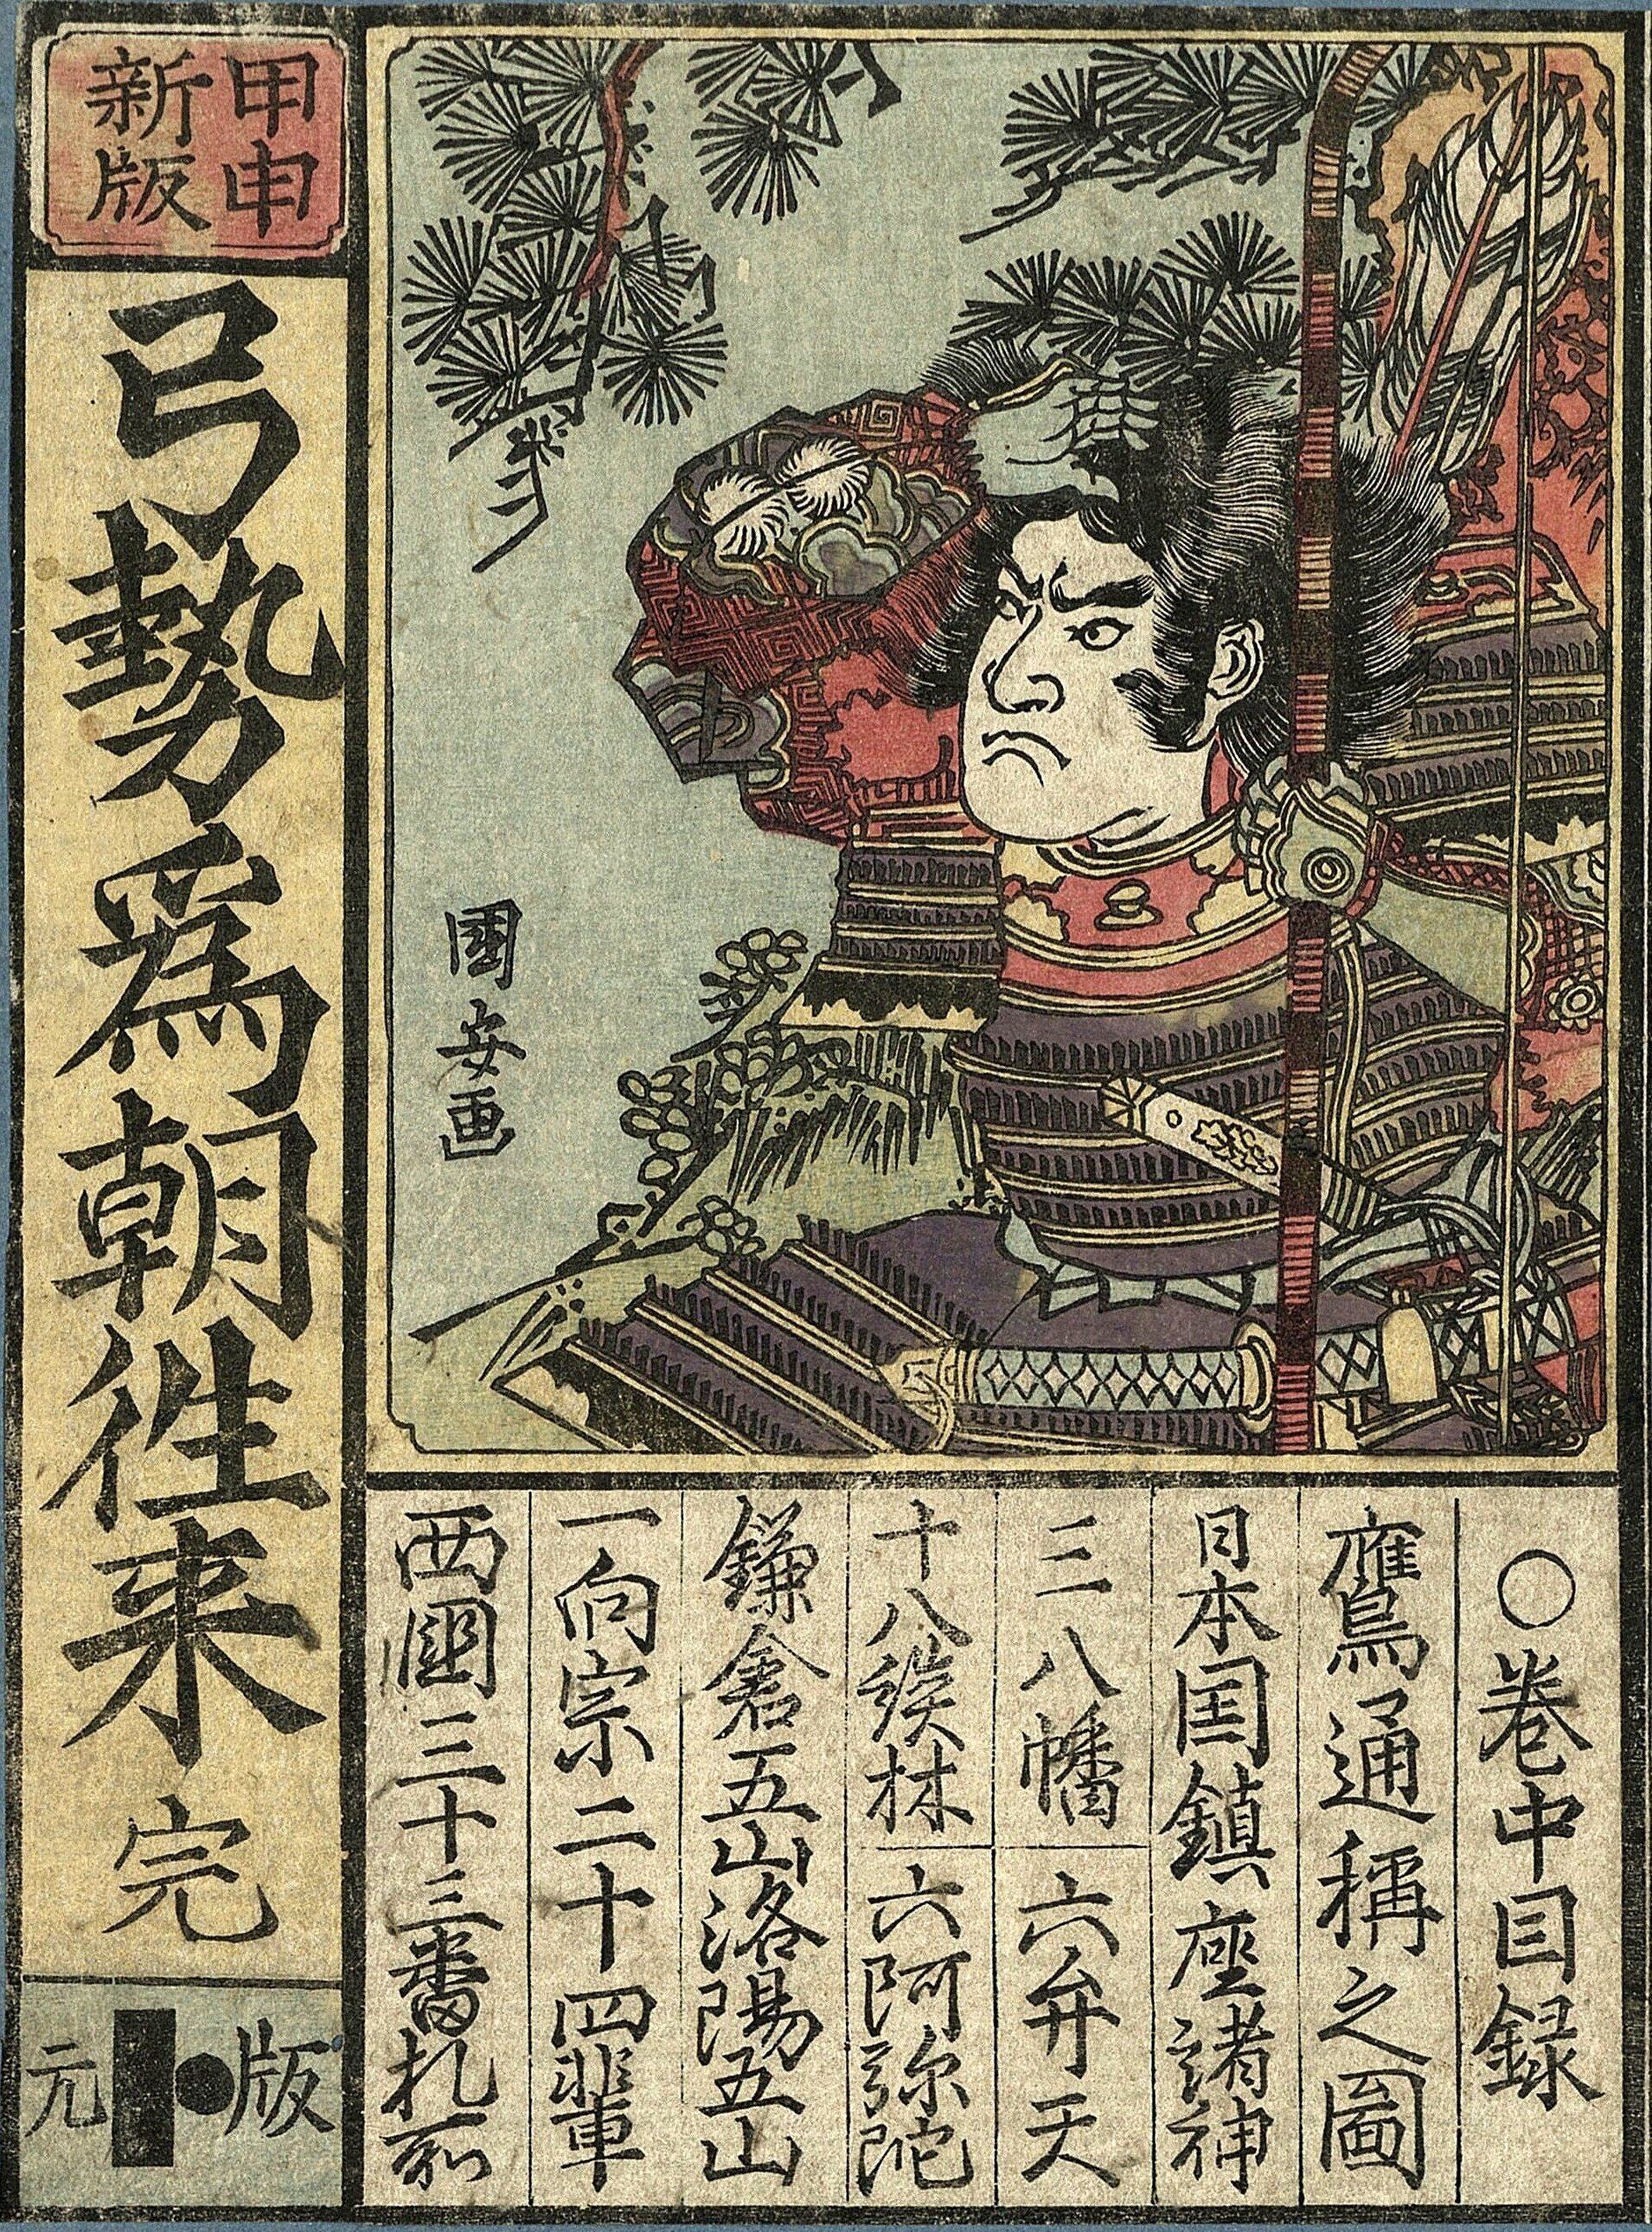 甲申
新版
弓勢爲朝徃来 完
版元
國安画
○巻中目録
鷹通稱之圖
日本国鎮座諸神
三八幡 六弁天
十八檀林 六阿弥陀
鎌倉五山洛陽五山
一向宗二十四輩
西國三十三番札所